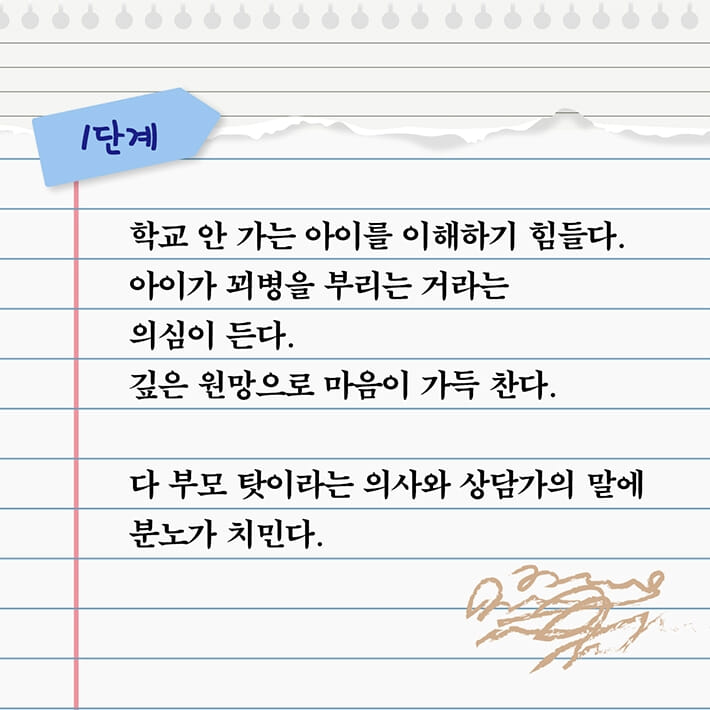 1단계
학교 안 가는 아이를 이해하기 힘들다.
아이가 꾀병을 부리는 거라는
의심이 든다.
깊은 원망으로 마음이 가득 찬다.
다 부모 탓이라는 의사와 상담가의 말에
분노가 치민다.